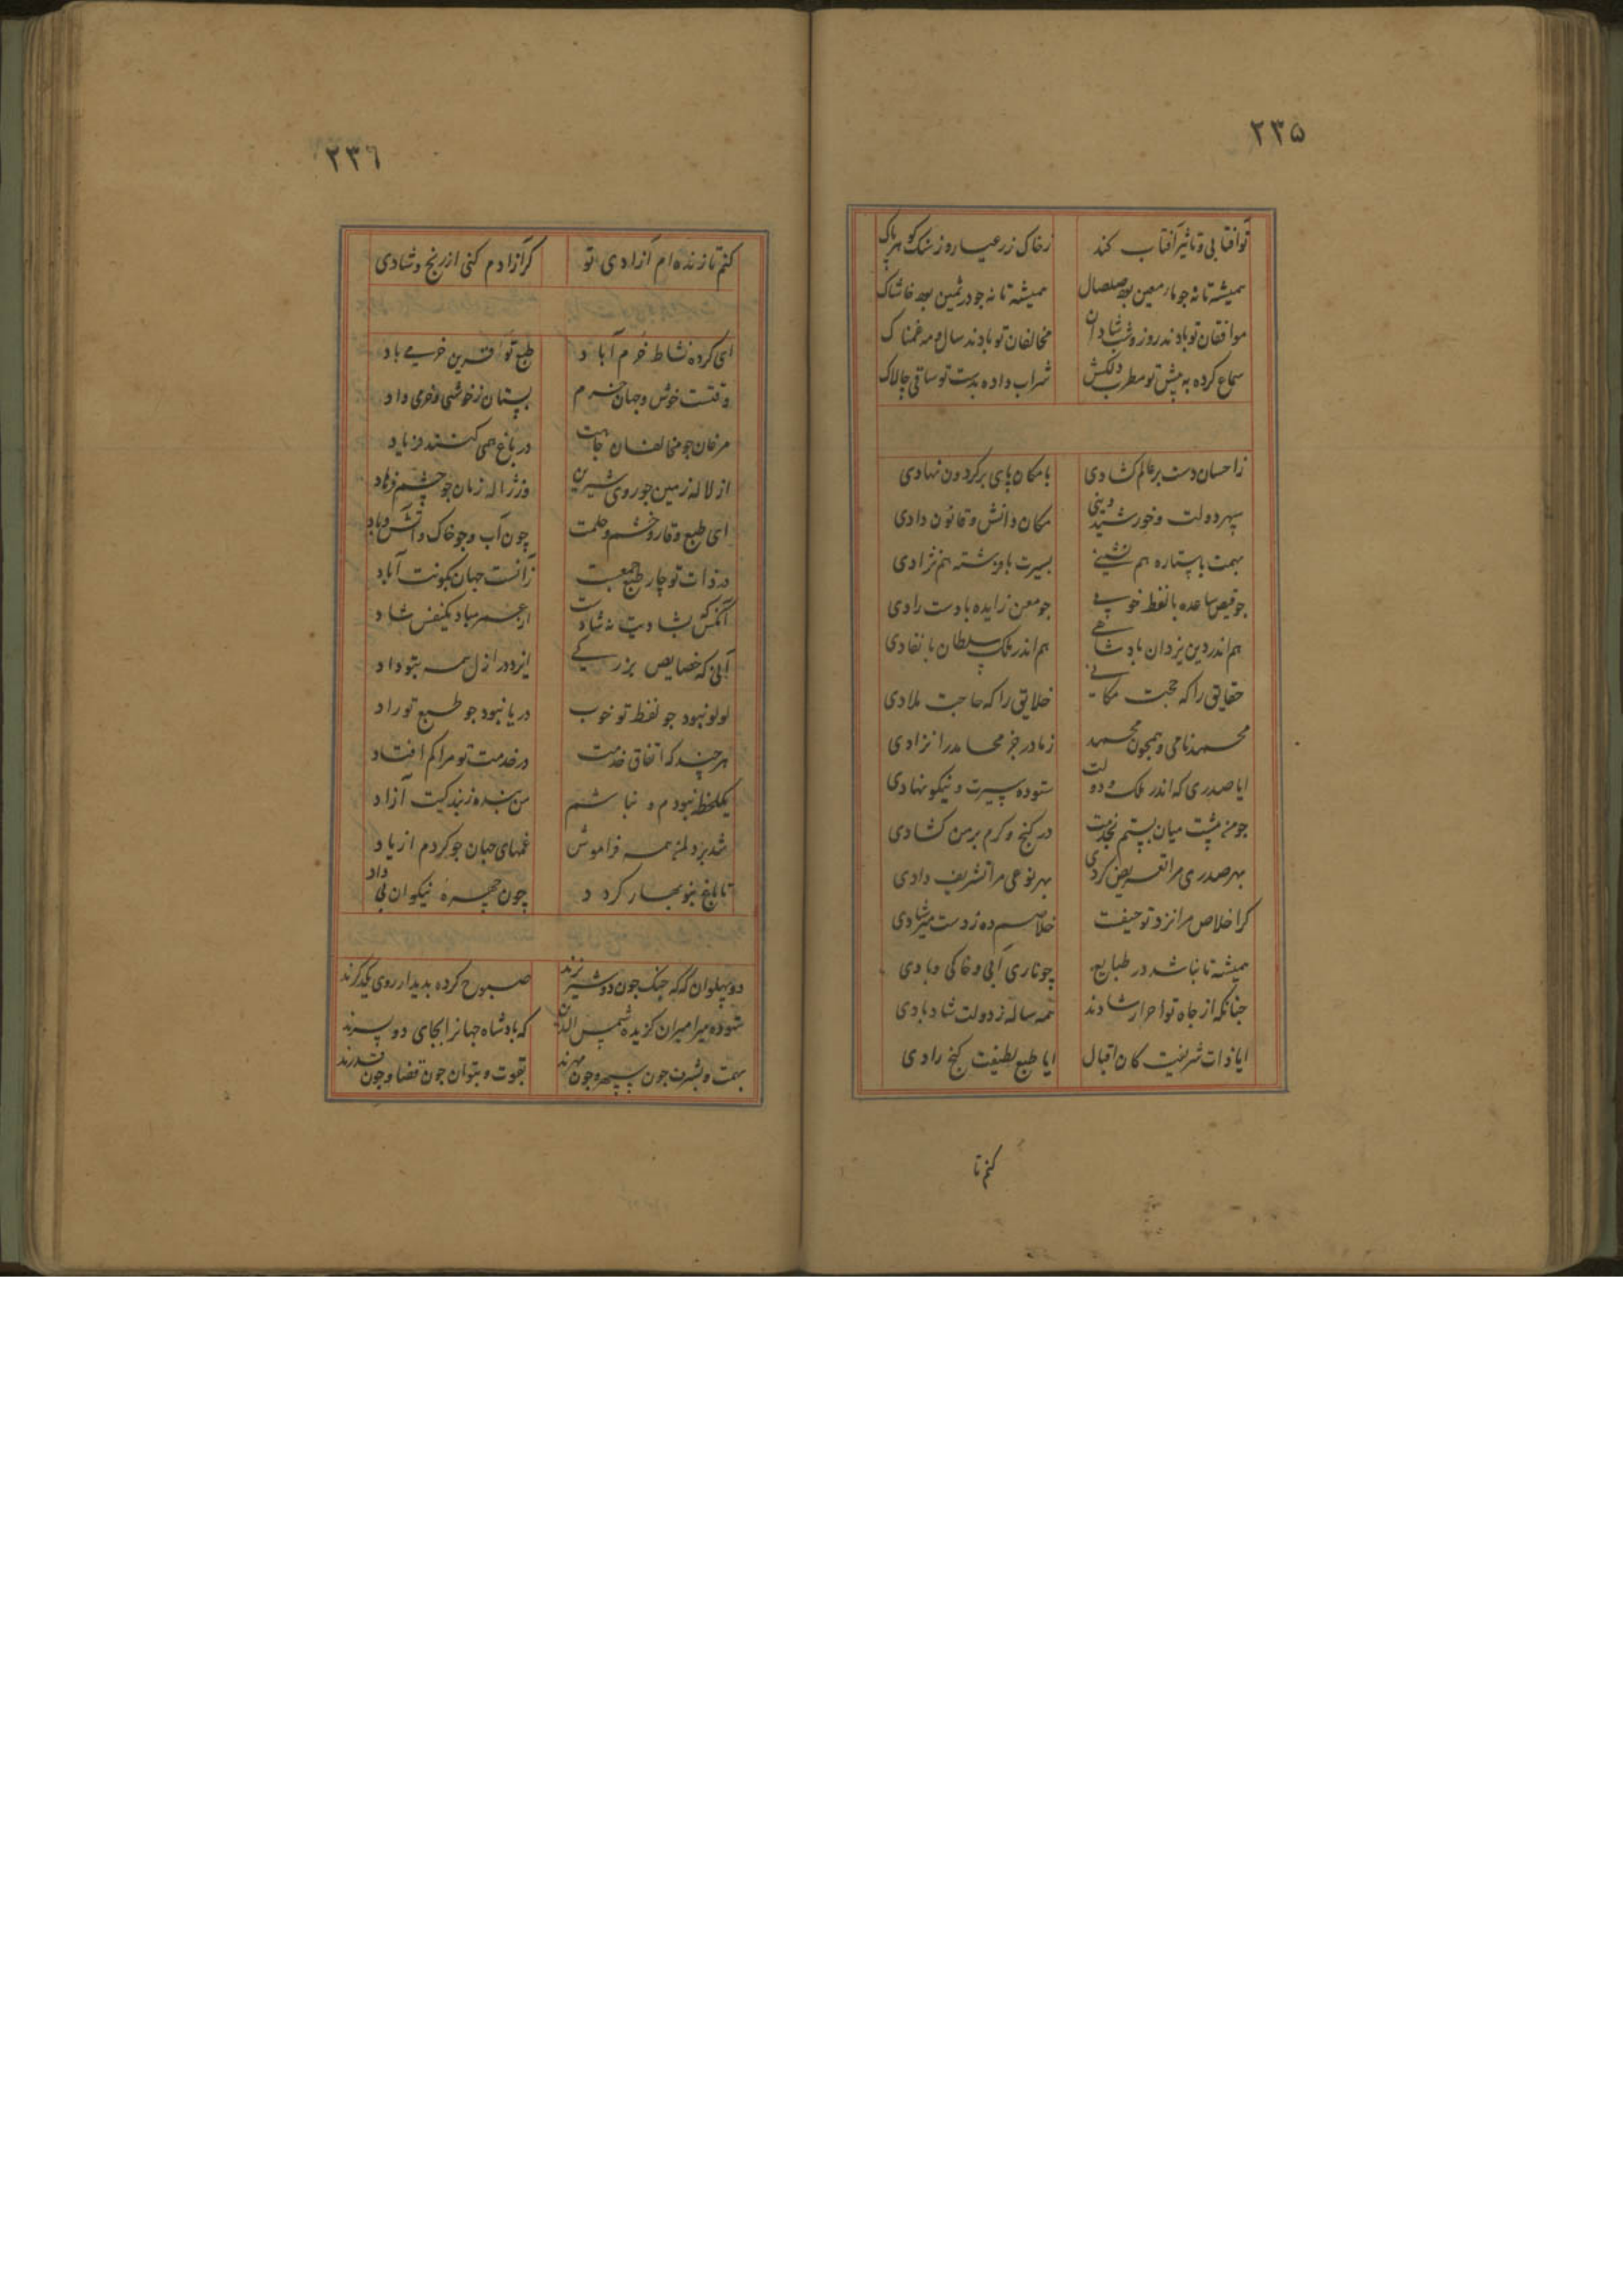 ۲۳۵
توافتابی و تاثیر آفتاب کند زخاک زر عیار و ز سنک کوهر پاک
همیشه تا نه جو ماء معین بود صلصال همیشه تا نه جو در ثمین بود خاشاک
موافقان تو بادند روز و شب شادان مخالفان تو بادند سال و مه غمناک
سماع کرده به پیش تو مطرب دلکش شراب داده بدست تو ساقی چالاک
ز احسان دست بر عالم کشادی بامکان پای بر کردون نهادی
سپهر دولت و خورشید دینی مکان دانش و قانون دادی
بهمت باستاره هم نشینی بسیرت بافرشته هم نژادی
جو قیص ساعده بالفظ خوبی جو معن زایده بادست رادی
هم اندر دین یزدان بادشاهی هم اندر ملک سلطان بانفادی
حقایق را که حجت مکانی خلایق را که حاجت ملادی
محمد نامی و همجون محمد ز مادر جز محامد را نزادی
ایا صدری که اندر ملک و دولت ستوده سیرت و نیکو نهادی
جو من پشت میان بستم بخدمت در کنج و کرم بر من کشادی
بهر صدری مرا تعریض کردی بهر نوعی مرا تشریف دادی
کر اخلاص مرا نزد تو حیفت خلاصم ده ز دست میر شادی
همیشه تا نباشد در طبایع چو ناری آبی و خاکی و بادی
جنانکه از جاه تو احرار شادند همه ساله ز دولت شاد بادی
ایا ذات شریفت کان اقبال ایا طبع لطیفت کنج رادی
کنم تا
۲۳۶
کنم تا زنده ام آزادی تو کر آزادم کنی از رنج و شادی
ای کرده نشاط خرم آباد طبع تو قرین خرمی باد
وقتست خوش و جهان خرم بستان ز خوشی و خری داد
مرغان جو مخالفان جاهت در باغ همی کنند فریاد
از لاله زمین جو روی شیرین وز ژاله زمان جو چشم فرهاد
ای طبع و وقار و خشم و حلمت چون آب و جو خاک و آتش و باد
در ذات تو چار طبع جمعست زانست جهان بکونت آباد
آنکس که بشادیت نه شادست از عمر مباد یکنفس شاد
آنی که خصایص بزرکی ایزد در ازل همه بتو داد
لولو نبود جو لفظ تو خوب دریا نبود جو طبع تو راد
هر چند که اتفاق خدمت در خدمت تو مرا کم افتاد
یکلحظه نبودم و نباشم من بنده ز بندکیت آزاد
شد بر دلم همه فراموش غمهای جهان جو کردم از یاد
تا باغ بنوبهار کردد چون چهره نیکوان بی داد
دو پهلوان که که جنک جون دو شیر نرند صبوح کرده بدیدار روی یکدکرند
ستوده میر امیران کزیده شمس الدین که بادشاه جهانرا بجای دو پسرند
بهمت و بشرف جون سپهر و جون مهرند بقوت و بتوان جون قضا و جون قدرند